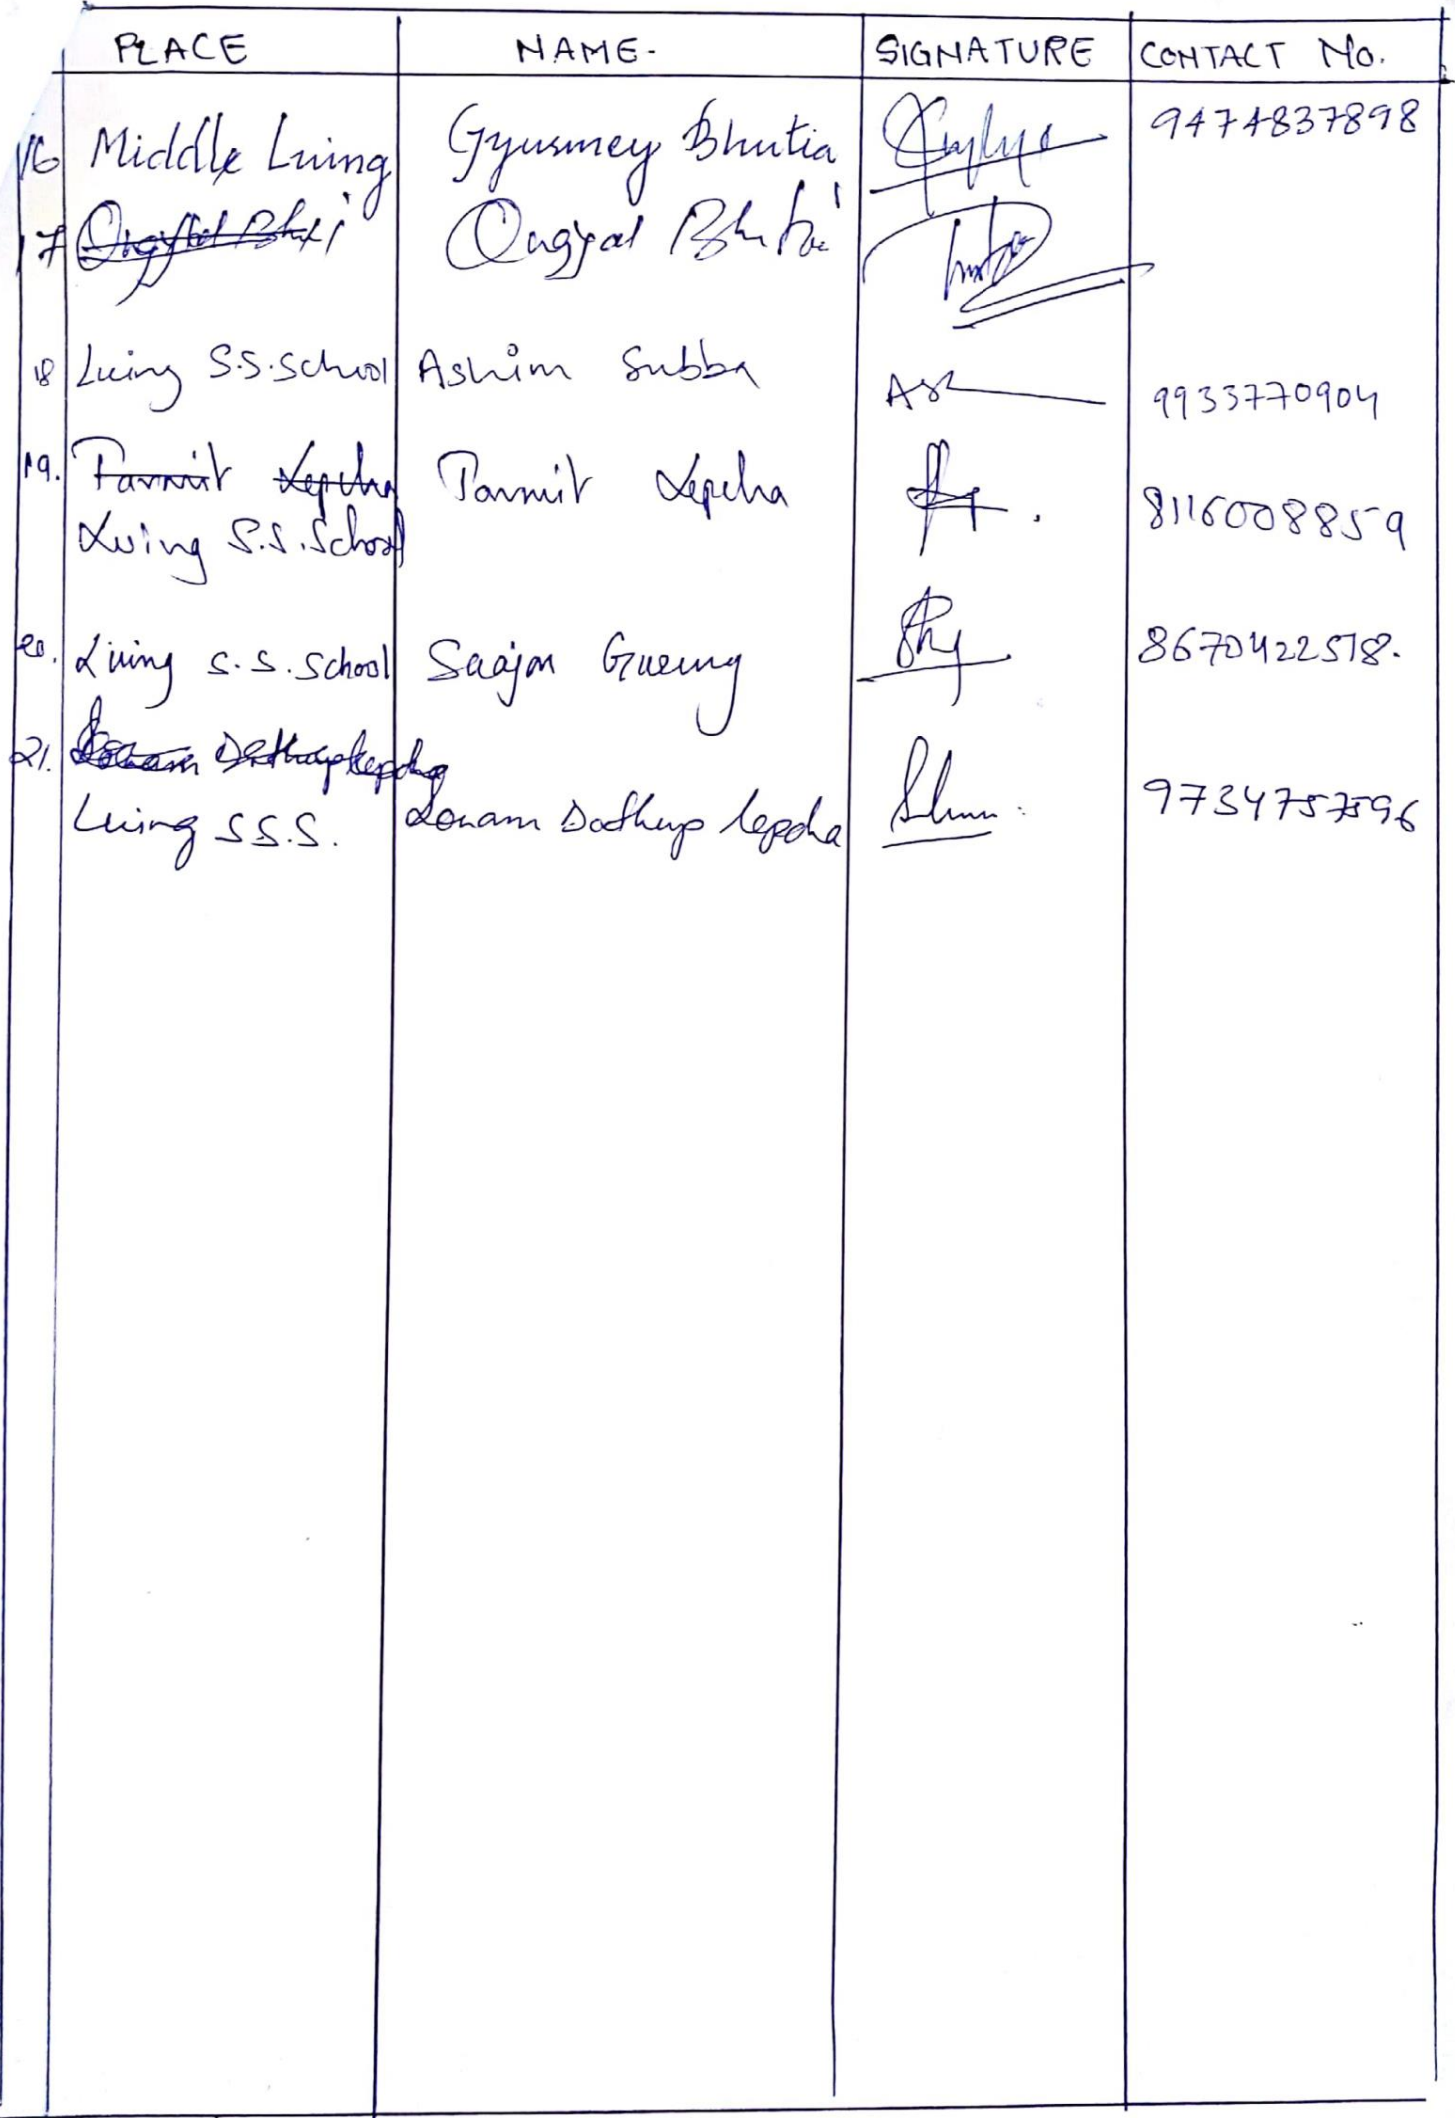 PLACE NAME- SIGNATURE CONTACT No.
16 Middle Luing Gyurmey Bhutia 9474837898
17 Ongyal Bhuti
18 Luing S.S.School Ashim Subba 9933770904
19. Parmit Lepcha Parmit Lepcha 8116008859
Luing S.S.School
20. Luing S.S.School Saajan Gurung 8670422518.
21. Sonam Dothup Lepcha
Luing S.S.S. Sonam Dothup Lepcha 9734757596